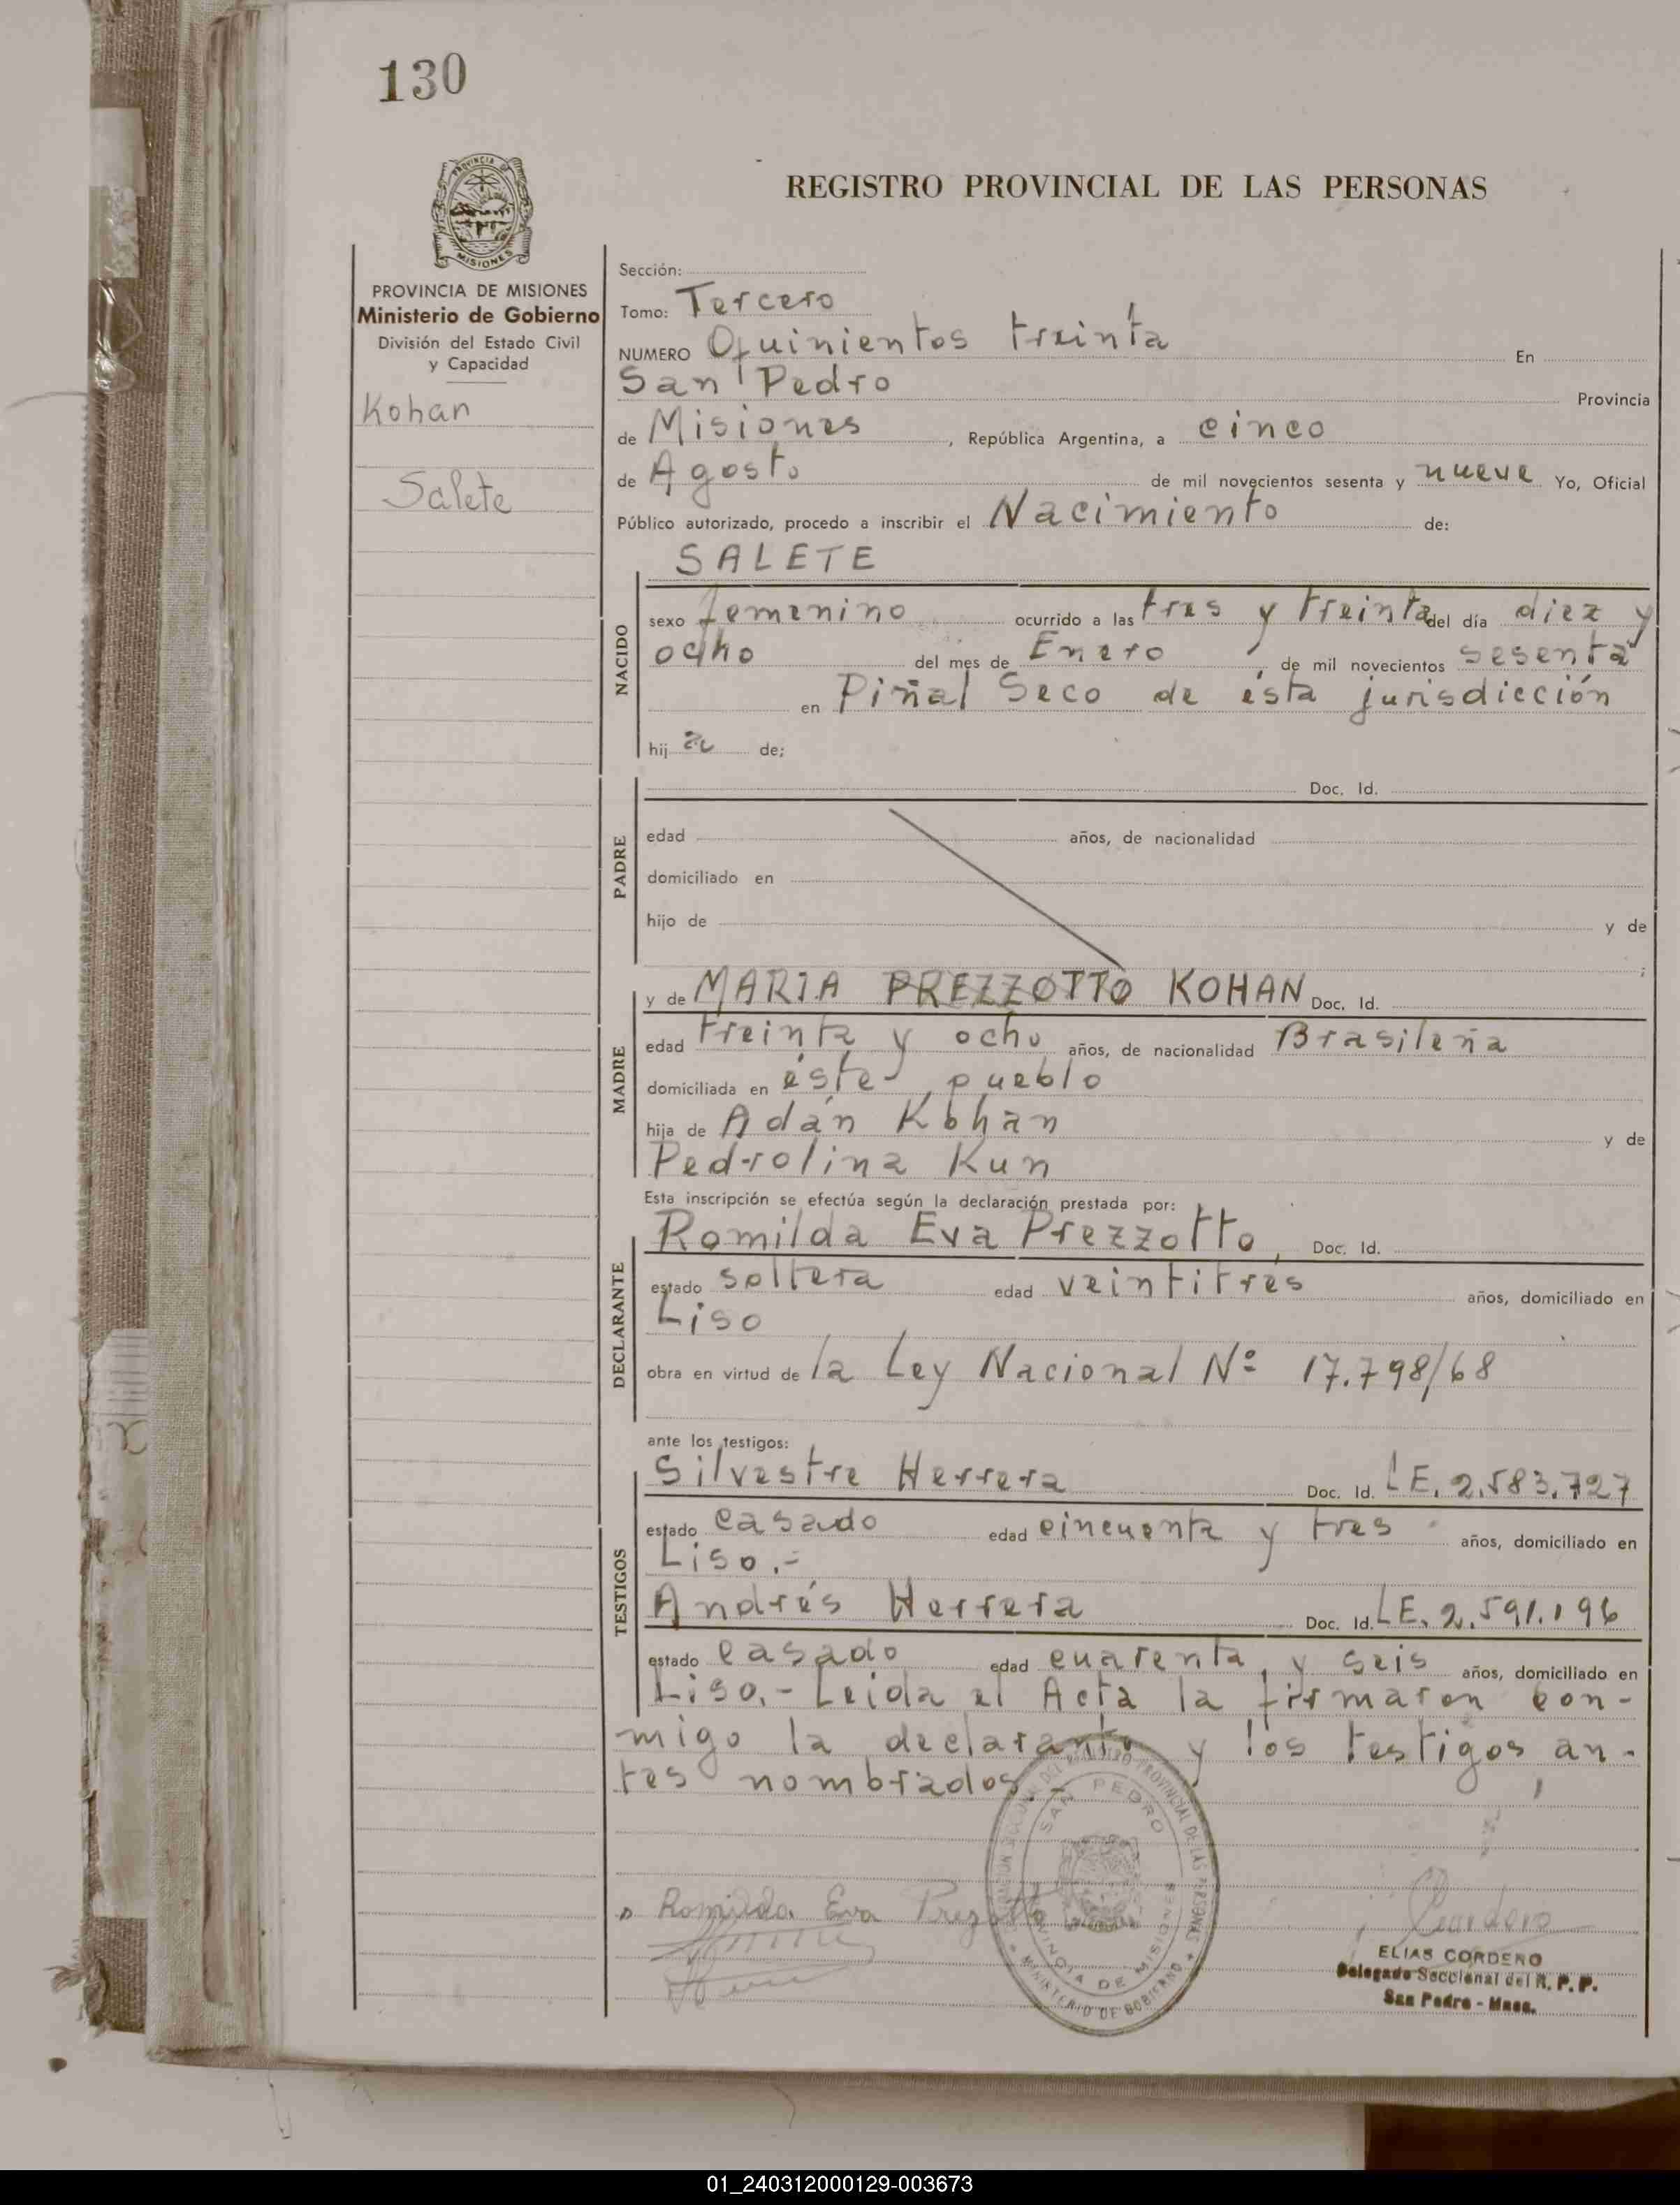 130
PROVINCIA DE
MISIONES
REGISTRO PROVINCIAL DE LAS PERSONAS
PROVINCIA DE MISIONES
Ministerio de Gobierno
División del Estado Civil
y Capacidad
Kohan
Salete
Sección:
Tomo: Tercero
NUMERO Quinientos treinta En
San Pedro Provincia
de Misiones, República Argentina, a cinco
de Agosto de mil novecientos sesenta y nueve Yo, Oficial
Público autorizado, procedo a inscribir el Nacimiento de:
SALETE
NACIDO
sexo femenino ocurrido a las tres y treinta del día diez y
ocho del mes de Enero, de mil novecientos sesenta
en Piñal Seco de ésta jurisdicción
hij a de;
PADRE
Doc. Id.
edad años, de nacionalidad
domiciliado en
hijo de y de
;
MADRE
y de MARIA PREZZOTTO KOHAN Doc. Id.
edad treinta y ocho años, de nacionalidad Brasileña
domiciliada en éste pueblo
hija de Adán Kohan y de
Pedrolina Kun
Esta inscripción se efectúa según la declaración prestada por:
DECLARANTE
Romilda Eva Prezzotto, Doc. Id.
estado soltera edad veintitrés años, domiciliado en
Liso
obra en virtud de la Ley Nacional Nº 17.798/68
ante los testigos:
TESTIGOS
Silvestre Herrera Doc. Id. LE. 2.583.727
estado casado edad cincuenta y tres años, domiciliado en
Liso.-
Andrés Herrera Doc. Id. LE. 2.591.196
estado casado edad cuarenta y seis años, domiciliado en
Liso.- Leida el Acta la firmaron con-
migo la declarante y los testigos an-
tes nombrados.-
SAN PEDRO
PROVINCIAL DE LAS PERSONAS
PROVINCIA DE MISIONES
MINISTERIO DE GOBIERNO
Romilda Eva Prezotto
Cordero
ELIAS CORDERO
Delegado Seccional del R. P. P.
San Pedro - Mnes.
01_240312000129-003673